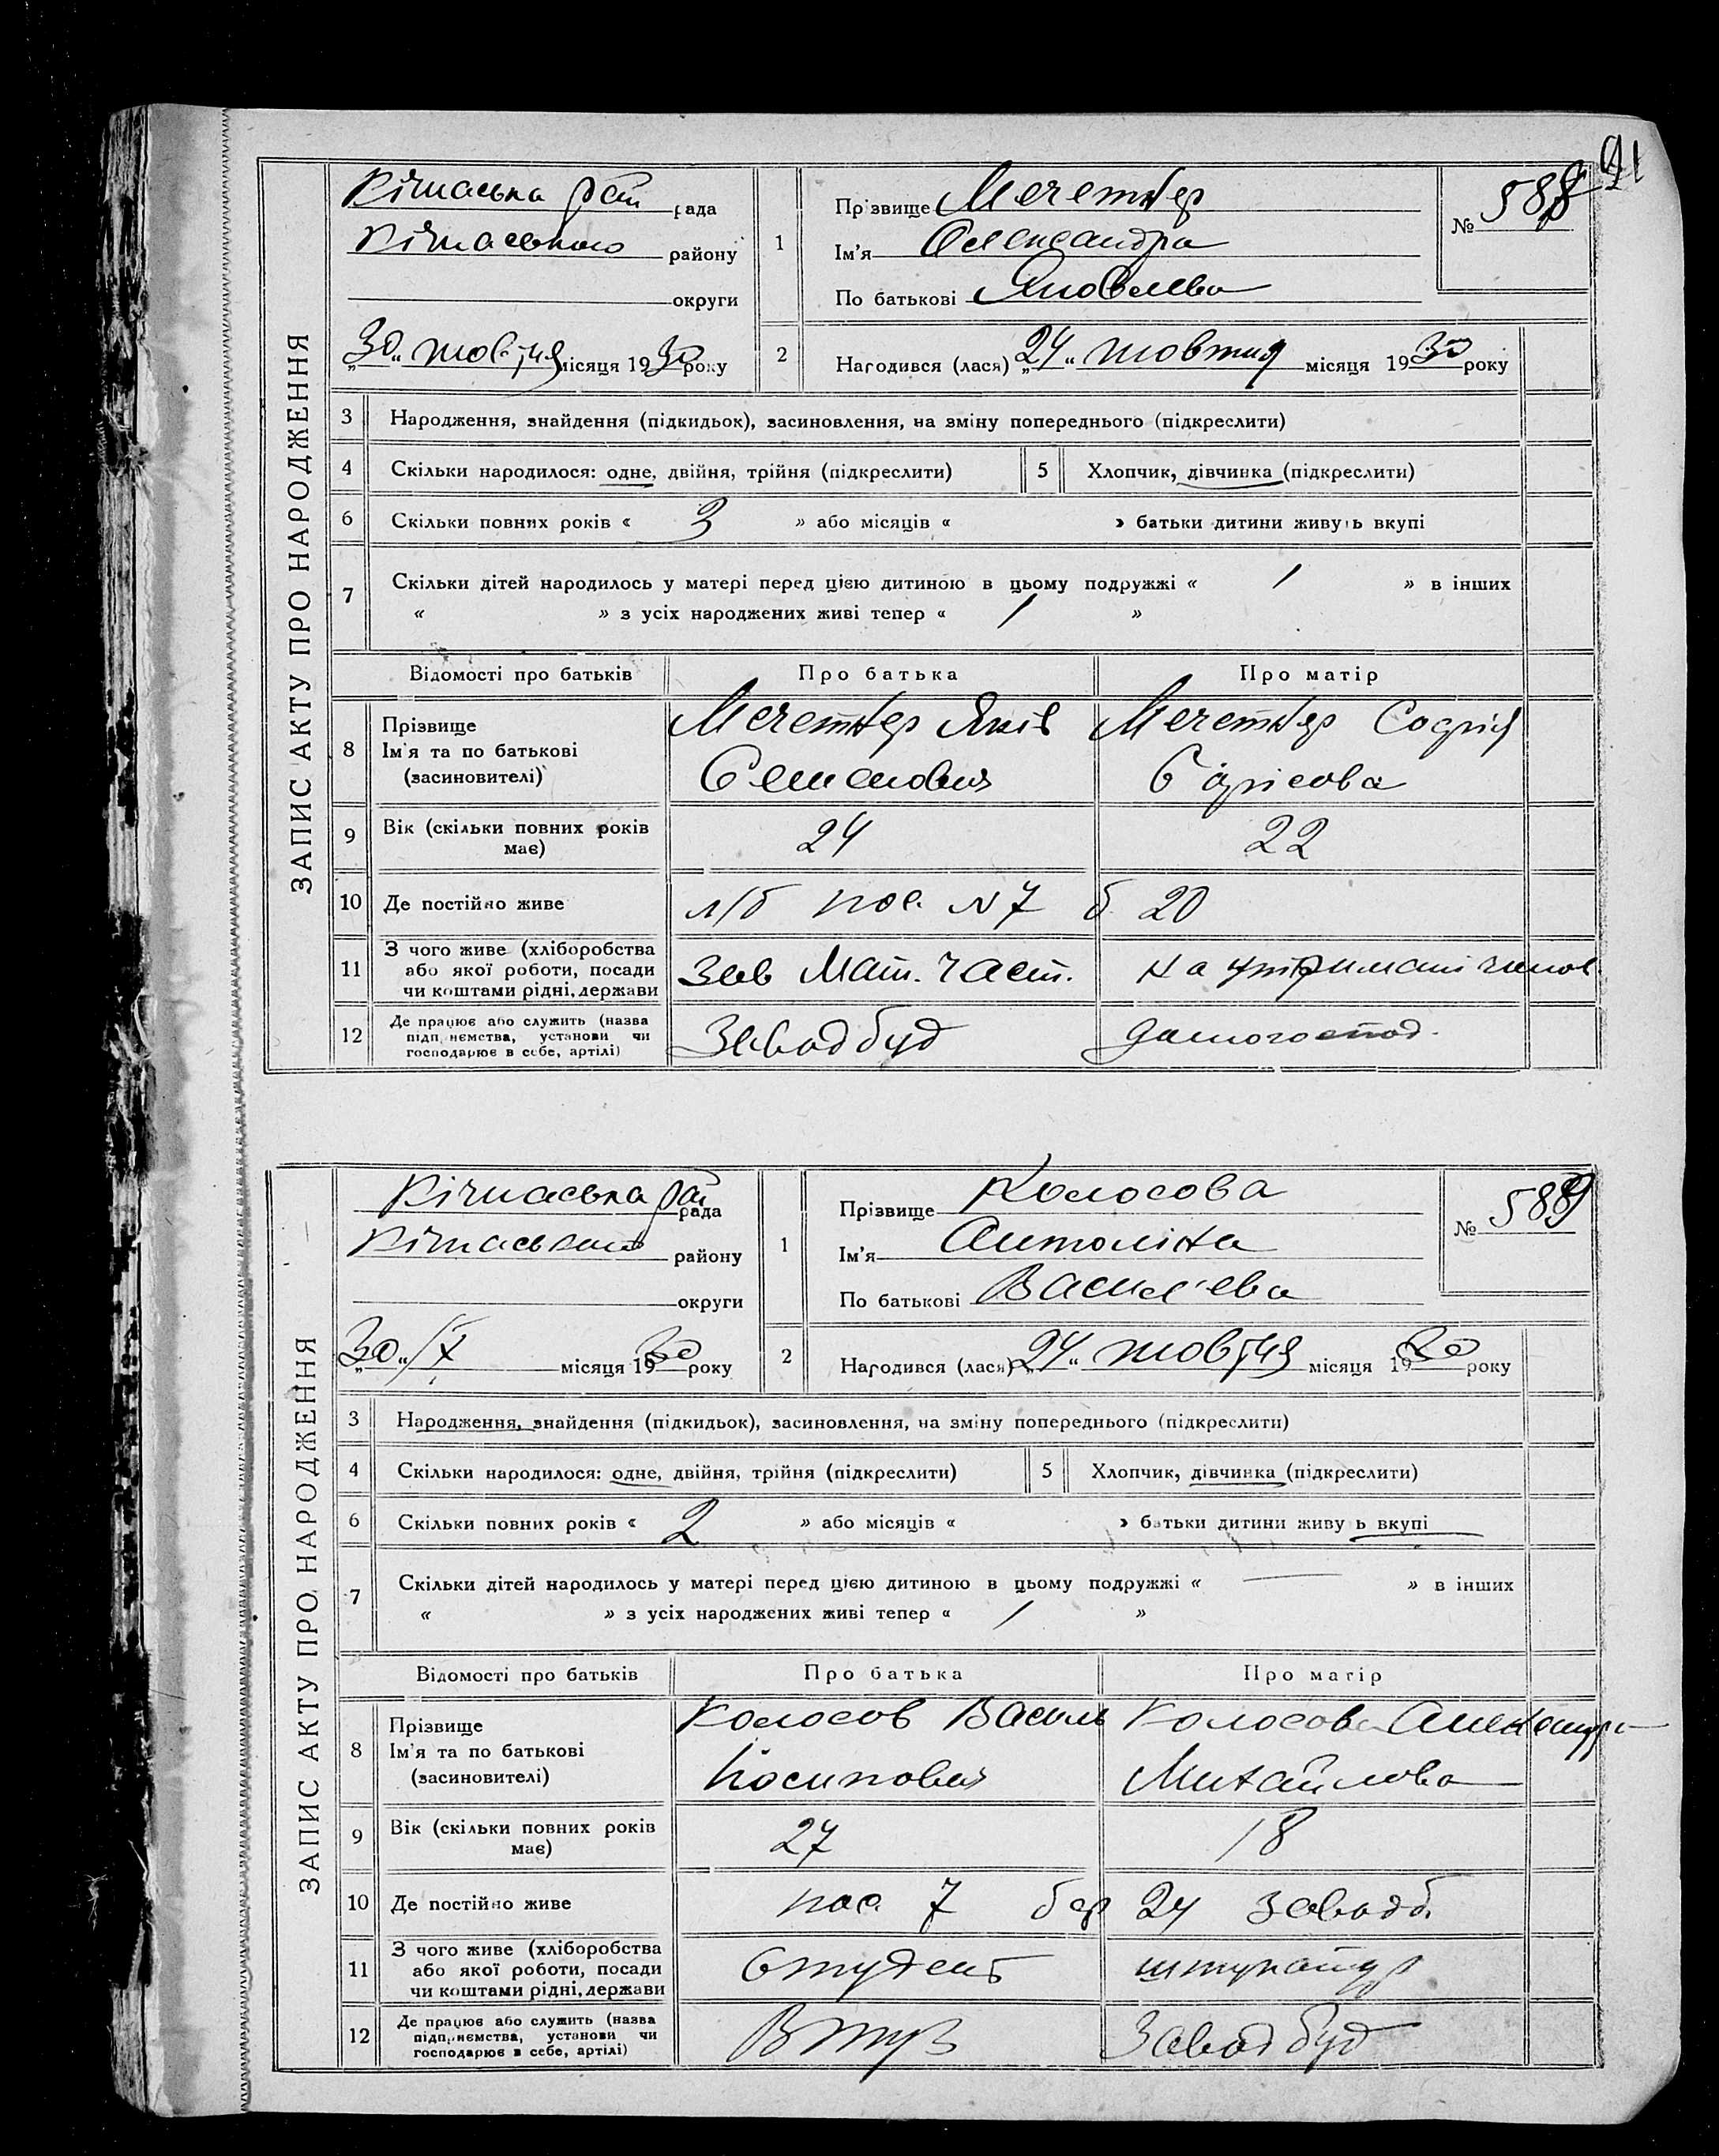 91
ЗАПИС АКТУ ПРО НАРОДЖЕННЯ
Кічкаська рай рада
Кічкаського району
округи
„30“ жовтня місяця 1930 року
1
Прізвище Мечетнер
Ім'я Олександра
По батькові Яковлева
№ 588
2
Народився (лася) „24“ жовтня місяця 1930 року
3 Народження, знайдення (підкидьок), засиновлення, на зміну попереднього (підкреслити)
4 Скільки народилося: одне, двійня, трійня (підкреслити)
5 Хлопчик, дівчинка (підкреслити)
6 Скільки повних років « 3 » або місяців « » батьки дитини живуть вкупі
7 Скільки дітей народилось у матері перед цією дитиною в цьому подружжі « 1 » в інших
« » з усіх народжених живі тепер « 1 »
Відомості про батьків Про батька Про матір
8 Прізвище
Ім'я та по батькові
(засиновителі)
Мечетнер Яків
Семенович
Мечетнер Софія
Борісова
9 Вік (скільки повних років має) 24 22
10 Де постійно живе л/б пос. N 7 б 20
11 З чого живе (хліборобства
або якої роботи, посади
чи коштами рідні, держави
Зав Мат. част. на утриманні чолов.
12 Де працює або служить (назва
підприємства, установи чи
господарює в себе, артілі)
Завод буд домогоспод.
ЗАПИС АКТУ ПРО НАРОДЖЕННЯ
Кічкаська рай рада
Кічкаського району
округи
„30“ /X місяця 1930 року
1
Прізвище Колосова
Ім'я Антоліна
По батькові Васил'ева
№ 589
2
Народився (лася) „24“ жовтня місяця 1930 року
3 Народження, знайдення (підкидьок), засиновлення, на зміну попереднього (підкреслити)
4 Скільки народилося: одне, двійня, трійня (підкреслити)
5 Хлопчик, дівчинка (підкреслити)
6 Скільки повних років « 2 » або місяців « » батьки дитини живуть вкупі
7 Скільки дітей народилось у матері перед цією дитиною в цьому подружжі « — » в інших
« » з усіх народжених живі тепер « 1 »
Відомості про батьків Про батька Про матір
8 Прізвище
Ім'я та по батькові
(засиновителі)
Колосов Василь
Йосипович
Колосова
Михайлова
9 Вік (скільки повних років має) 27 18
10 Де постійно живе пос. 7 бар 24 Заводб.
11 З чого живе (хліборобства
або якої роботи, посади
чи коштами рідні, держави
Студент штукатур
12 Де працює або служить (назва
підприємства, установи чи
господарює в себе, артілі)
Втуз Завод буд